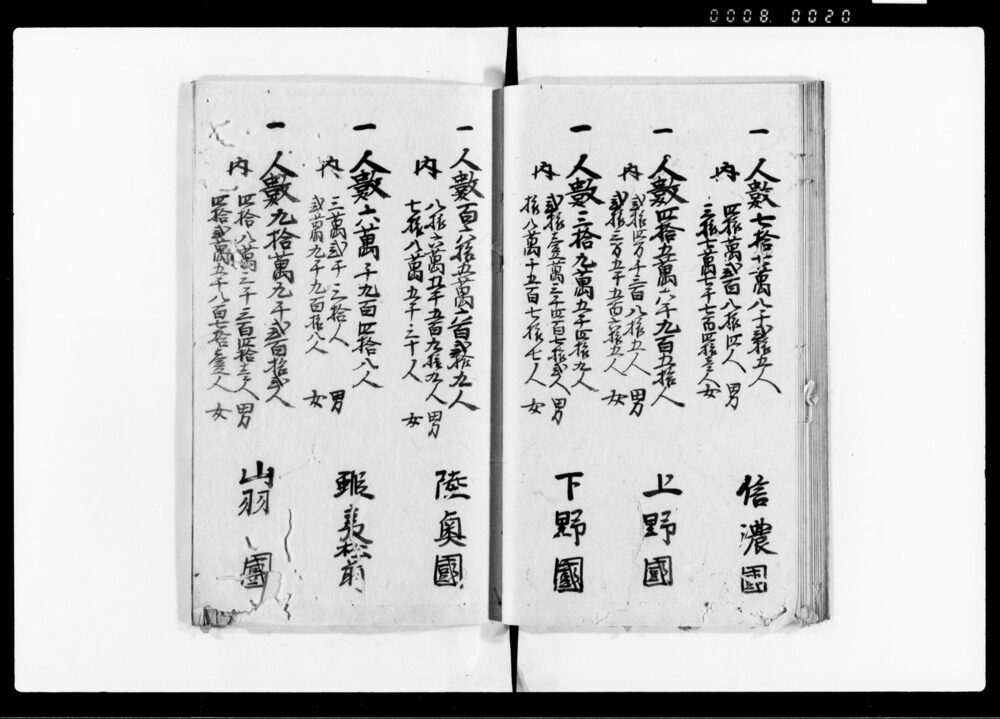 0008 0020
一 人數七拾七萬八千貳拾五人
内 四拾萬貳百八拾四人 男
三拾七萬七千七百四拾壱人 女
信濃國
一 人數四拾五萬六千九百五拾人
内 貳拾四万千三百八拾五人 男
貳拾三万五千五百六拾五人 女
上野國
一 人數三拾九萬五千四拾九人
内 貳拾壱萬三千四百七拾貳人 男
拾八萬千五百七拾七人 女
下野國
一 人數百六拾五萬六百貳拾九人
内 八拾六萬五千五百九拾九人 男
七拾八萬五千三十人 女
陸奥國
一 人數六萬千九百四拾八人
内 三萬貳千三拾人 男
貳萬九千九百拾八人 女
蝦夷松前
一 人數九拾萬九千貳百拾貳人
内 四拾八萬三千三百四拾三人 男
四拾貳萬五千八百七拾壱人 女
山羽 國